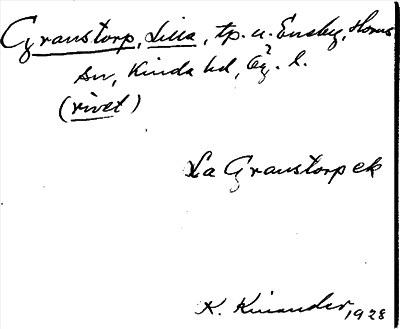 Granstorp, Lilla, tp. u. Ensby, Horns
sn, Kinda hd, Ög. l.
(rivet)
La Granstorp ek
K. Kinander, 1928